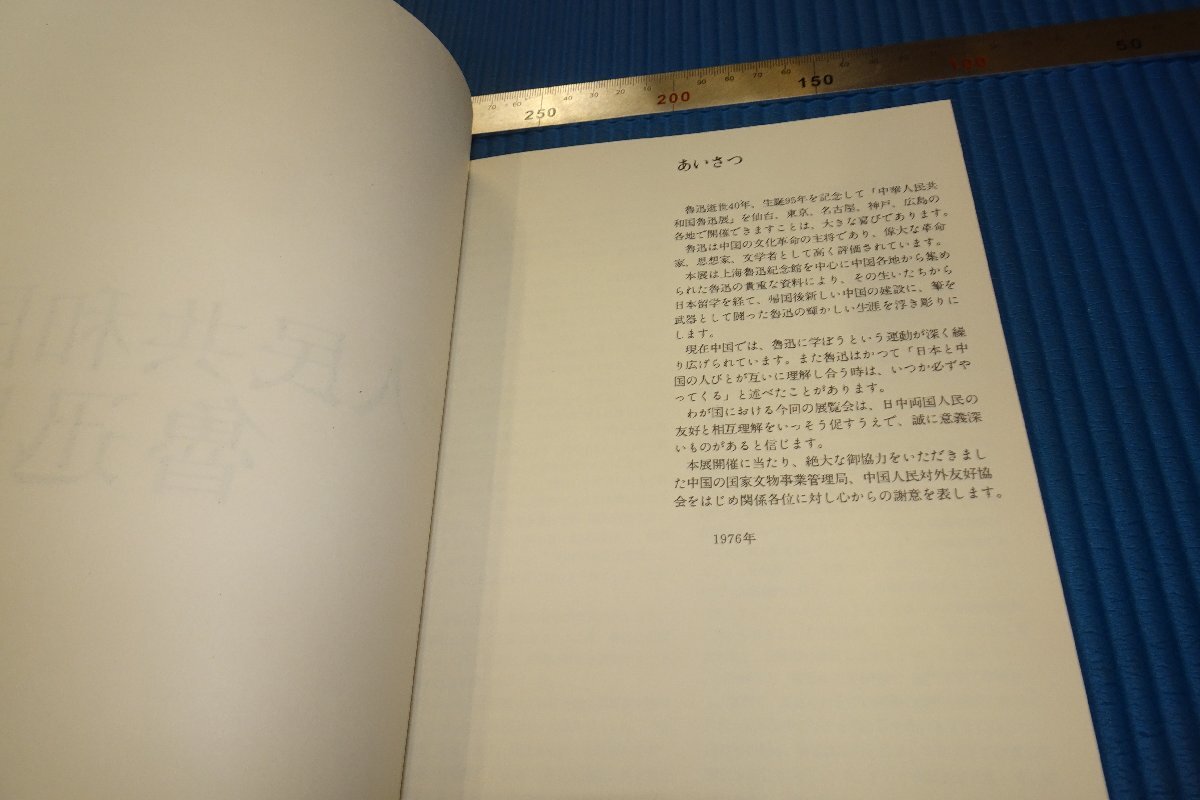 250
200
150
100
50
あいさつ
魯迅逝世40年、生誕95年を記念して「中華人民共
和国魯迅展」を仙台、東京、名古屋、神戸、広島の
各地で開催できますことは、大きな喜びであります。
魯迅は中国の文化革命の主将であり、偉大な革命
家、思想家、文学者として高く評価されています。
本展は上海魯迅紀念館を中心に中国各地から集め
られた魯迅の貴重な資料により、その生いたちから
日本留学を経て、帰国後新しい中国の建設に、筆を
武器として闘った魯迅の輝かしい生涯を浮き彫りに
します。
現在中国では、魯迅に学ぼうという運動が深く繰
り広げられています。また魯迅はかつて「日本と中
国の人びとが互いに理解し合う時は、いつか必ずや
ってくる」と述べたことがあります。
わが国における今回の展覧会は、日中両国人民の
友好と相互理解をいっそう促すうえで、誠に意義深
いものがあると信じます。
本展開催に当たり、絶大な御協力をいただきまし
た中国の国家文物事業管理局、中国人民対外友好協
会をはじめ関係各位に対し心からの謝意を表します。
1976年